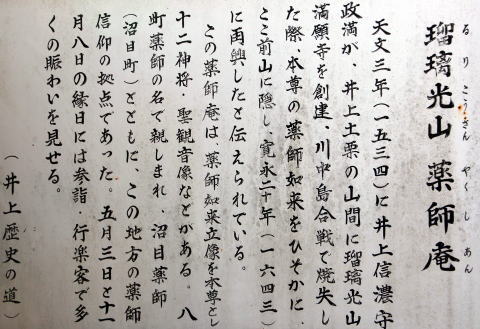 瑠璃光山 薬師庵
るりこうざん やくしあん
天文三年(一五三四)に井上信濃守
政満が、井上土栗の山間に瑠璃光山
満願寺を創建、川中島合戦で焼失し
た際、本尊の薬師如来をひそかに、
ここ前山に隠し、寛永二十年(一六四三)
に再興したと伝えられている。
この薬師庵は、薬師如来立像を本尊とし
十二神将・聖観音像などがある。八
町薬師の名で親しまれ、沼目薬師
(沼目町)とともに、この地方の薬師
信仰の拠点であった。五月三日と十一
月八日の縁日には参詣・行楽客で多
くの賑わいを見せる。
(井上歴史の道)